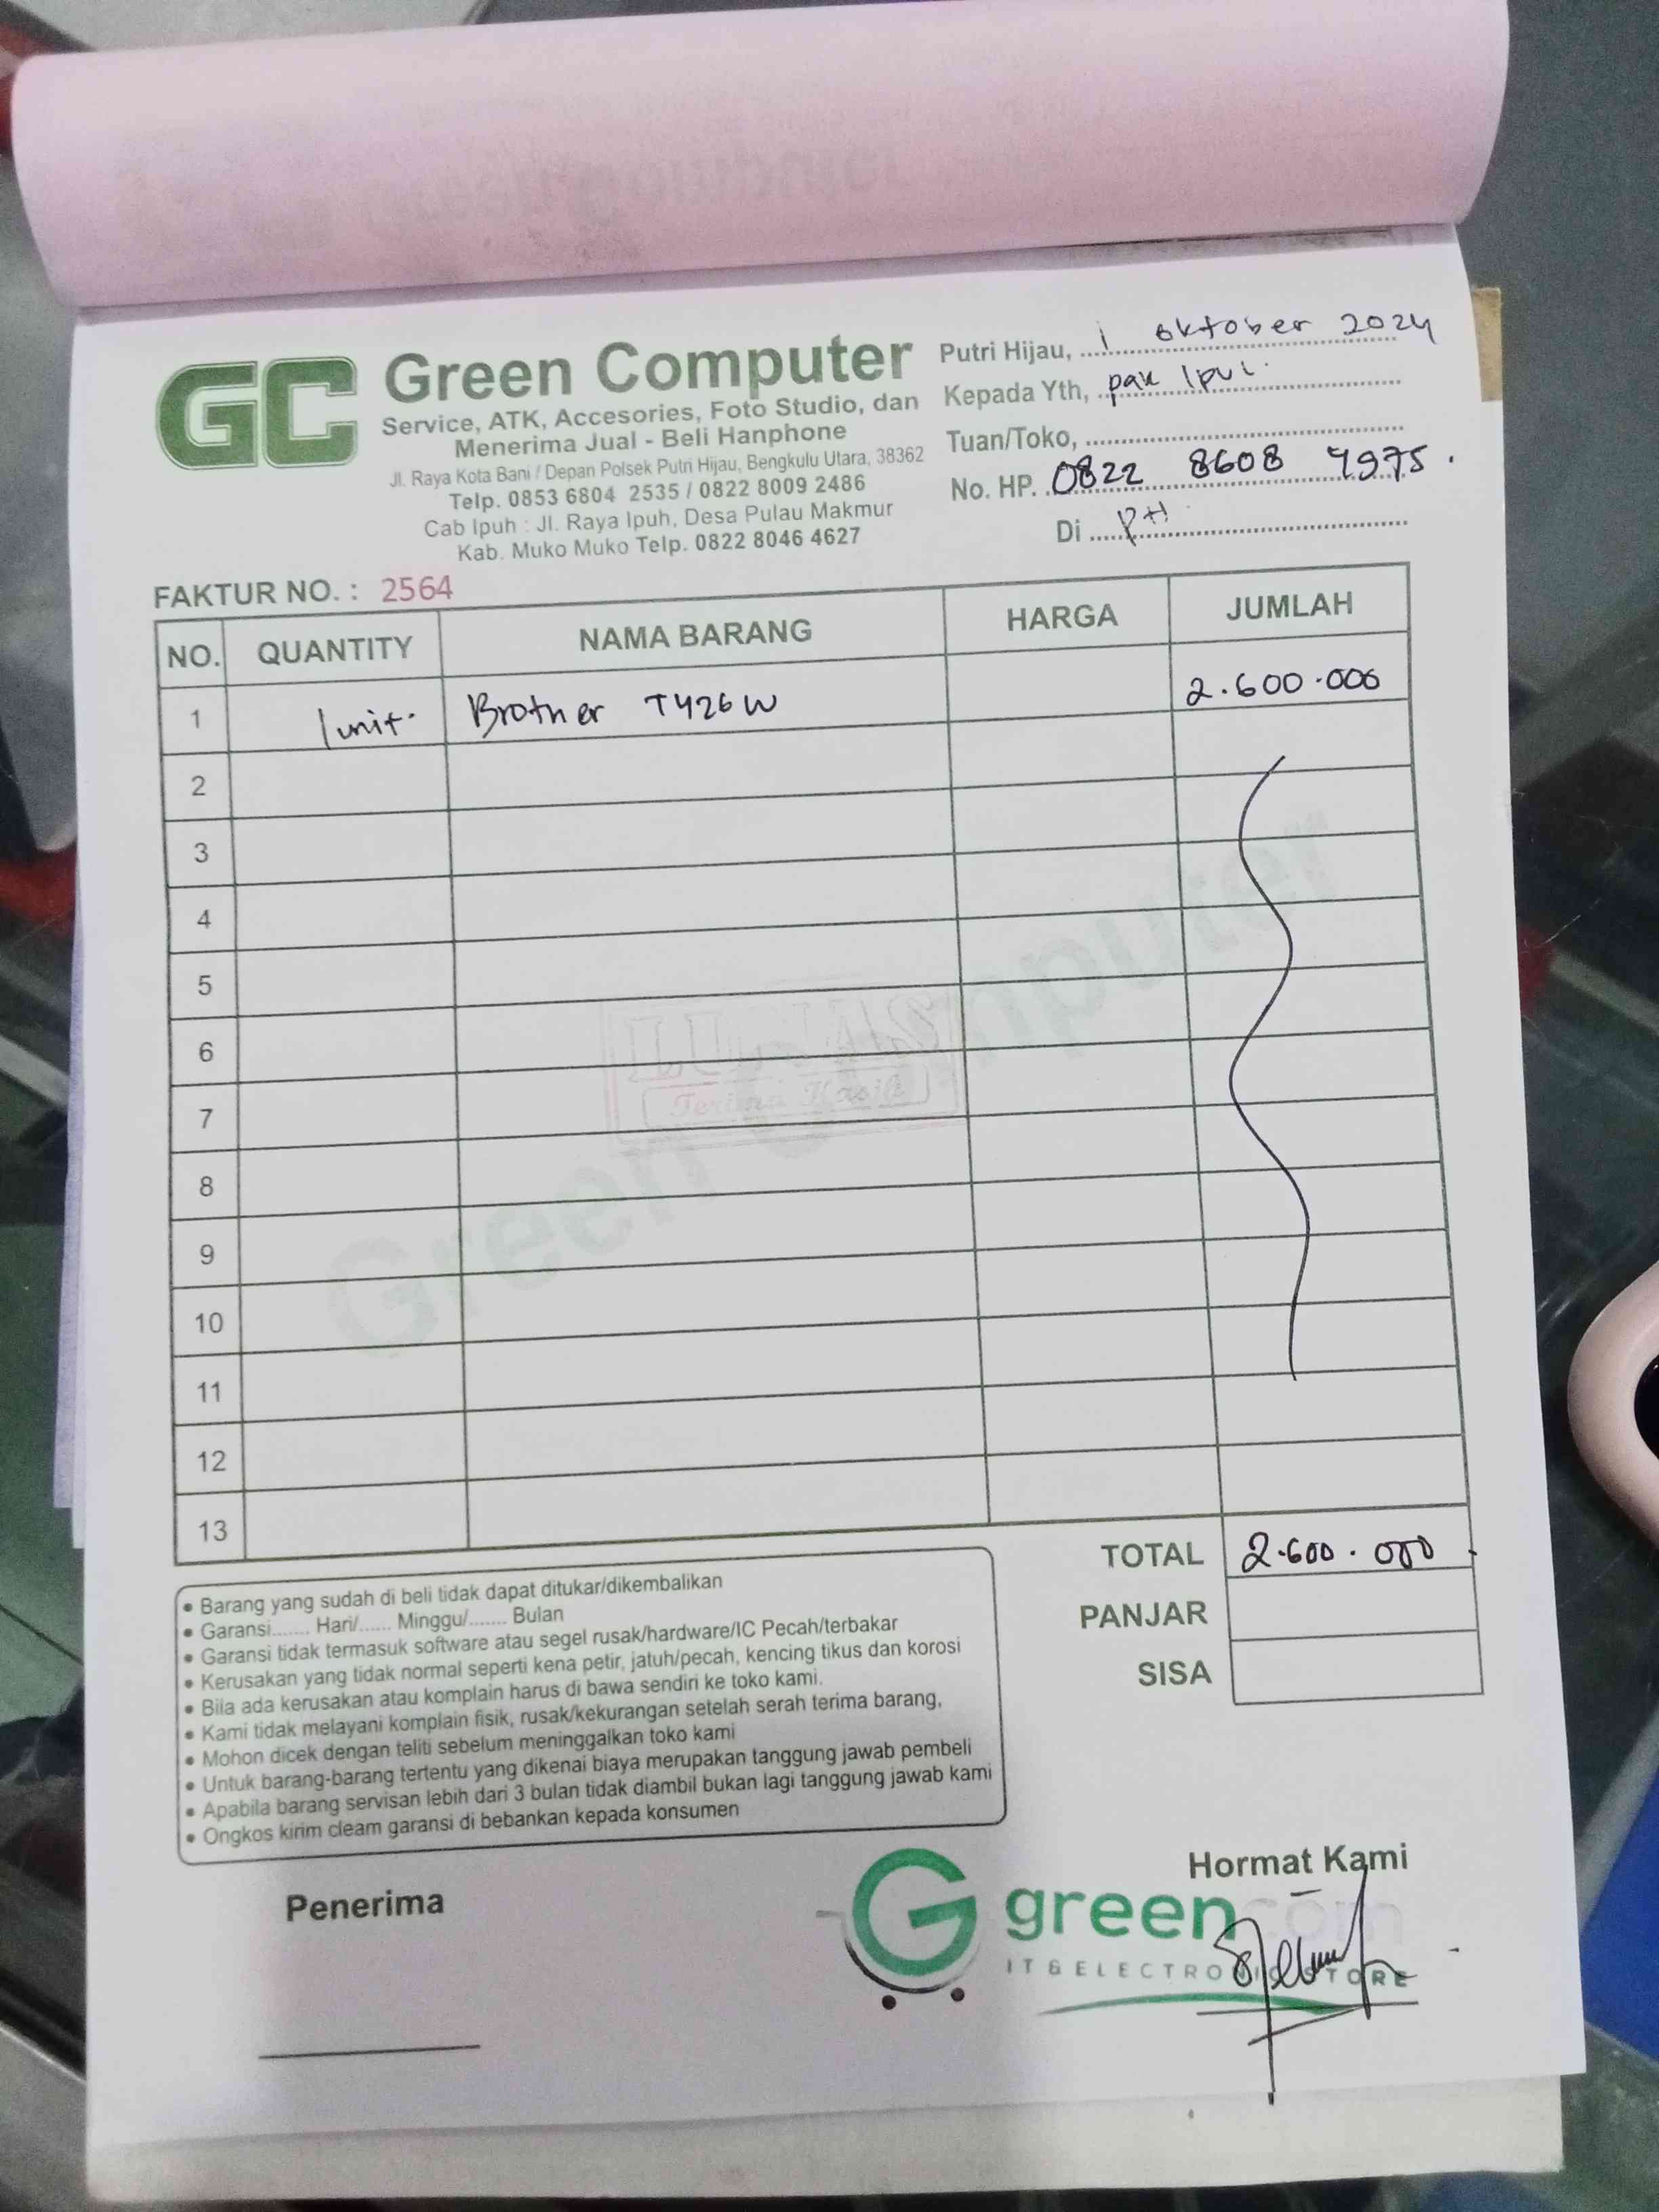 GC
Green Computer
Service, ATK, Accesories, Foto Studio, dan
Menerima Jual - Beli Hanphone
Jl. Raya Kota Bani / Depan Polsek Putri Hijau, Bengkulu Utara, 38362
Telp. 0853 6804 2535 / 0822 8009 2486
Cab Ipuh : Jl. Raya Ipuh, Desa Pulau Makmur
Kab. Muko Muko Telp. 0822 8046 4627
Putri Hijau, 1 oktober 2024
Kepada Yth, pak Ipul.
Tuan/Toko,
No. HP. 0822 8608 4975.
Di PH
FAKTUR NO. : 2564
NO. QUANTITY NAMA BARANG HARGA JUMLAH
1 1 unit. Brother T426W 2.600.000
2
3
4
5
6
7
8
9
10
11
12
13
Green Computer
LUNAS
Terima Kasih
TOTAL 2.600.000
PANJAR
SISA
• Barang yang sudah di beli tidak dapat ditukar/dikembalikan
• Garansi....... Hari/...... Minggu/....... Bulan
• Garansi tidak termasuk software atau segel rusak/hardware/IC Pecah/terbakar
• Kerusakan yang tidak normal seperti kena petir, jatuh/pecah, kencing tikus dan korosi
• Bila ada kerusakan atau komplain harus di bawa sendiri ke toko kami.
• Kami tidak melayani komplain fisik, rusak/kekurangan setelah serah terima barang,
• Mohon dicek dengan teliti sebelum meninggalkan toko kami
• Untuk barang-barang tertentu yang dikenai biaya merupakan tanggung jawab pembeli
• Apabila barang servisan lebih dari 3 bulan tidak diambil bukan lagi tanggung jawab kami
• Ongkos kirim cleam garansi di bebankan kepada konsumen
Penerima
Hormat Kami
greencom
IT & ELECTRONIC STORE